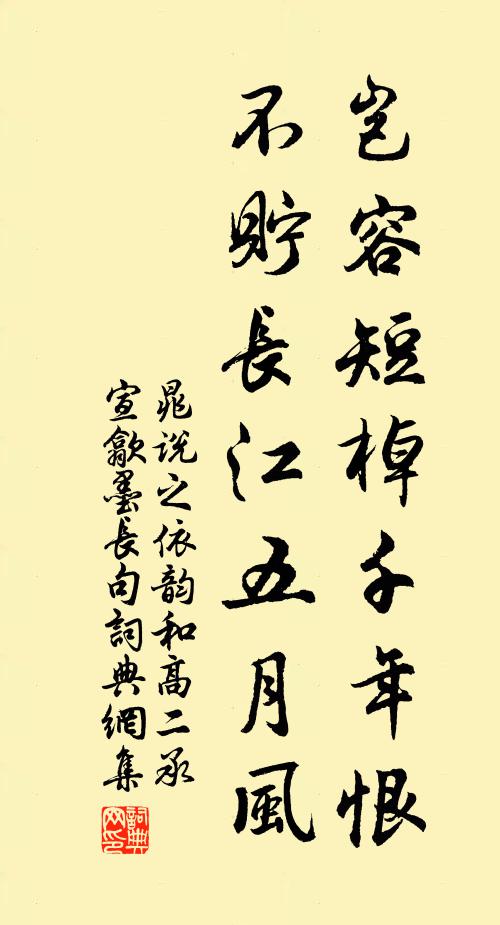 豈容短棹千年恨
不貯長江五月風
晁說之依韵和高二承
宣歙墨長句詞典網集
詞典
网印